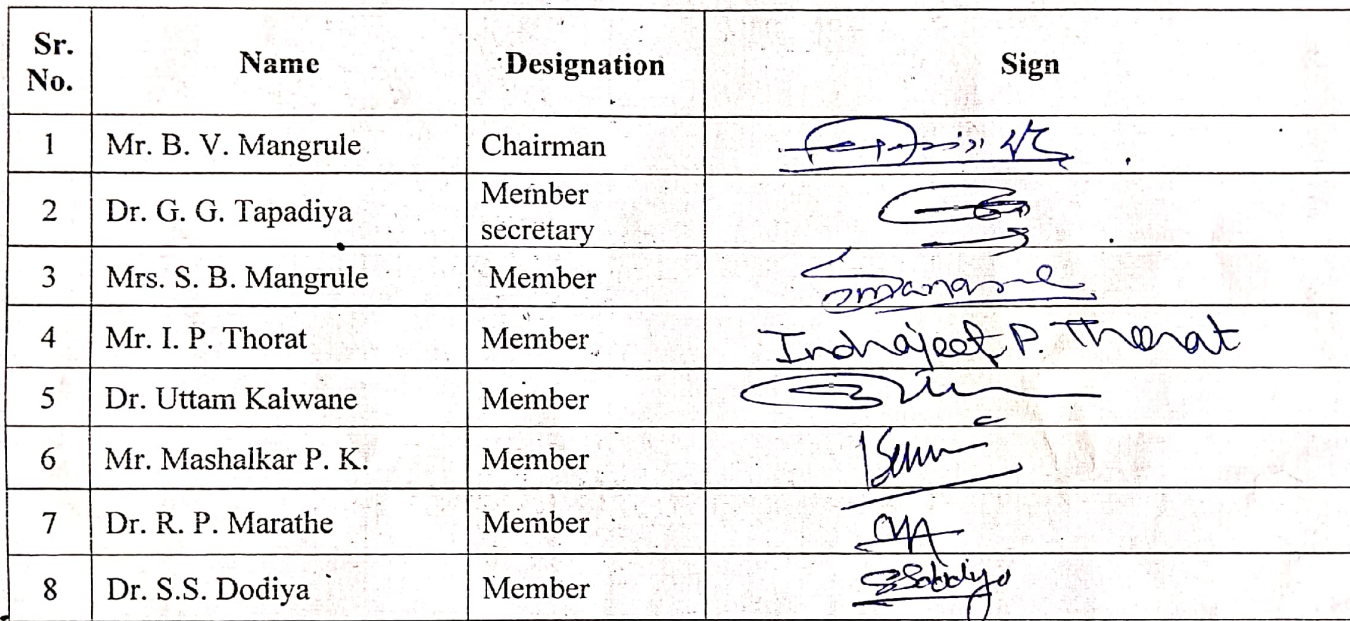 Sr. No. Name Designation Sign
1 Mr. B. V. Mangrule Chairman
2 Dr. G. G. Tapadiya Member secretary
3 Mrs. S. B. Mangrule Member
4 Mr. I. P. Thorat Member Indrajeet P. Thorat
5 Dr. Uttam Kalwane Member
6 Mr. Mashalkar P. K. Member
7 Dr. R. P. Marathe Member
8 Dr. S.S. Dodiya Member